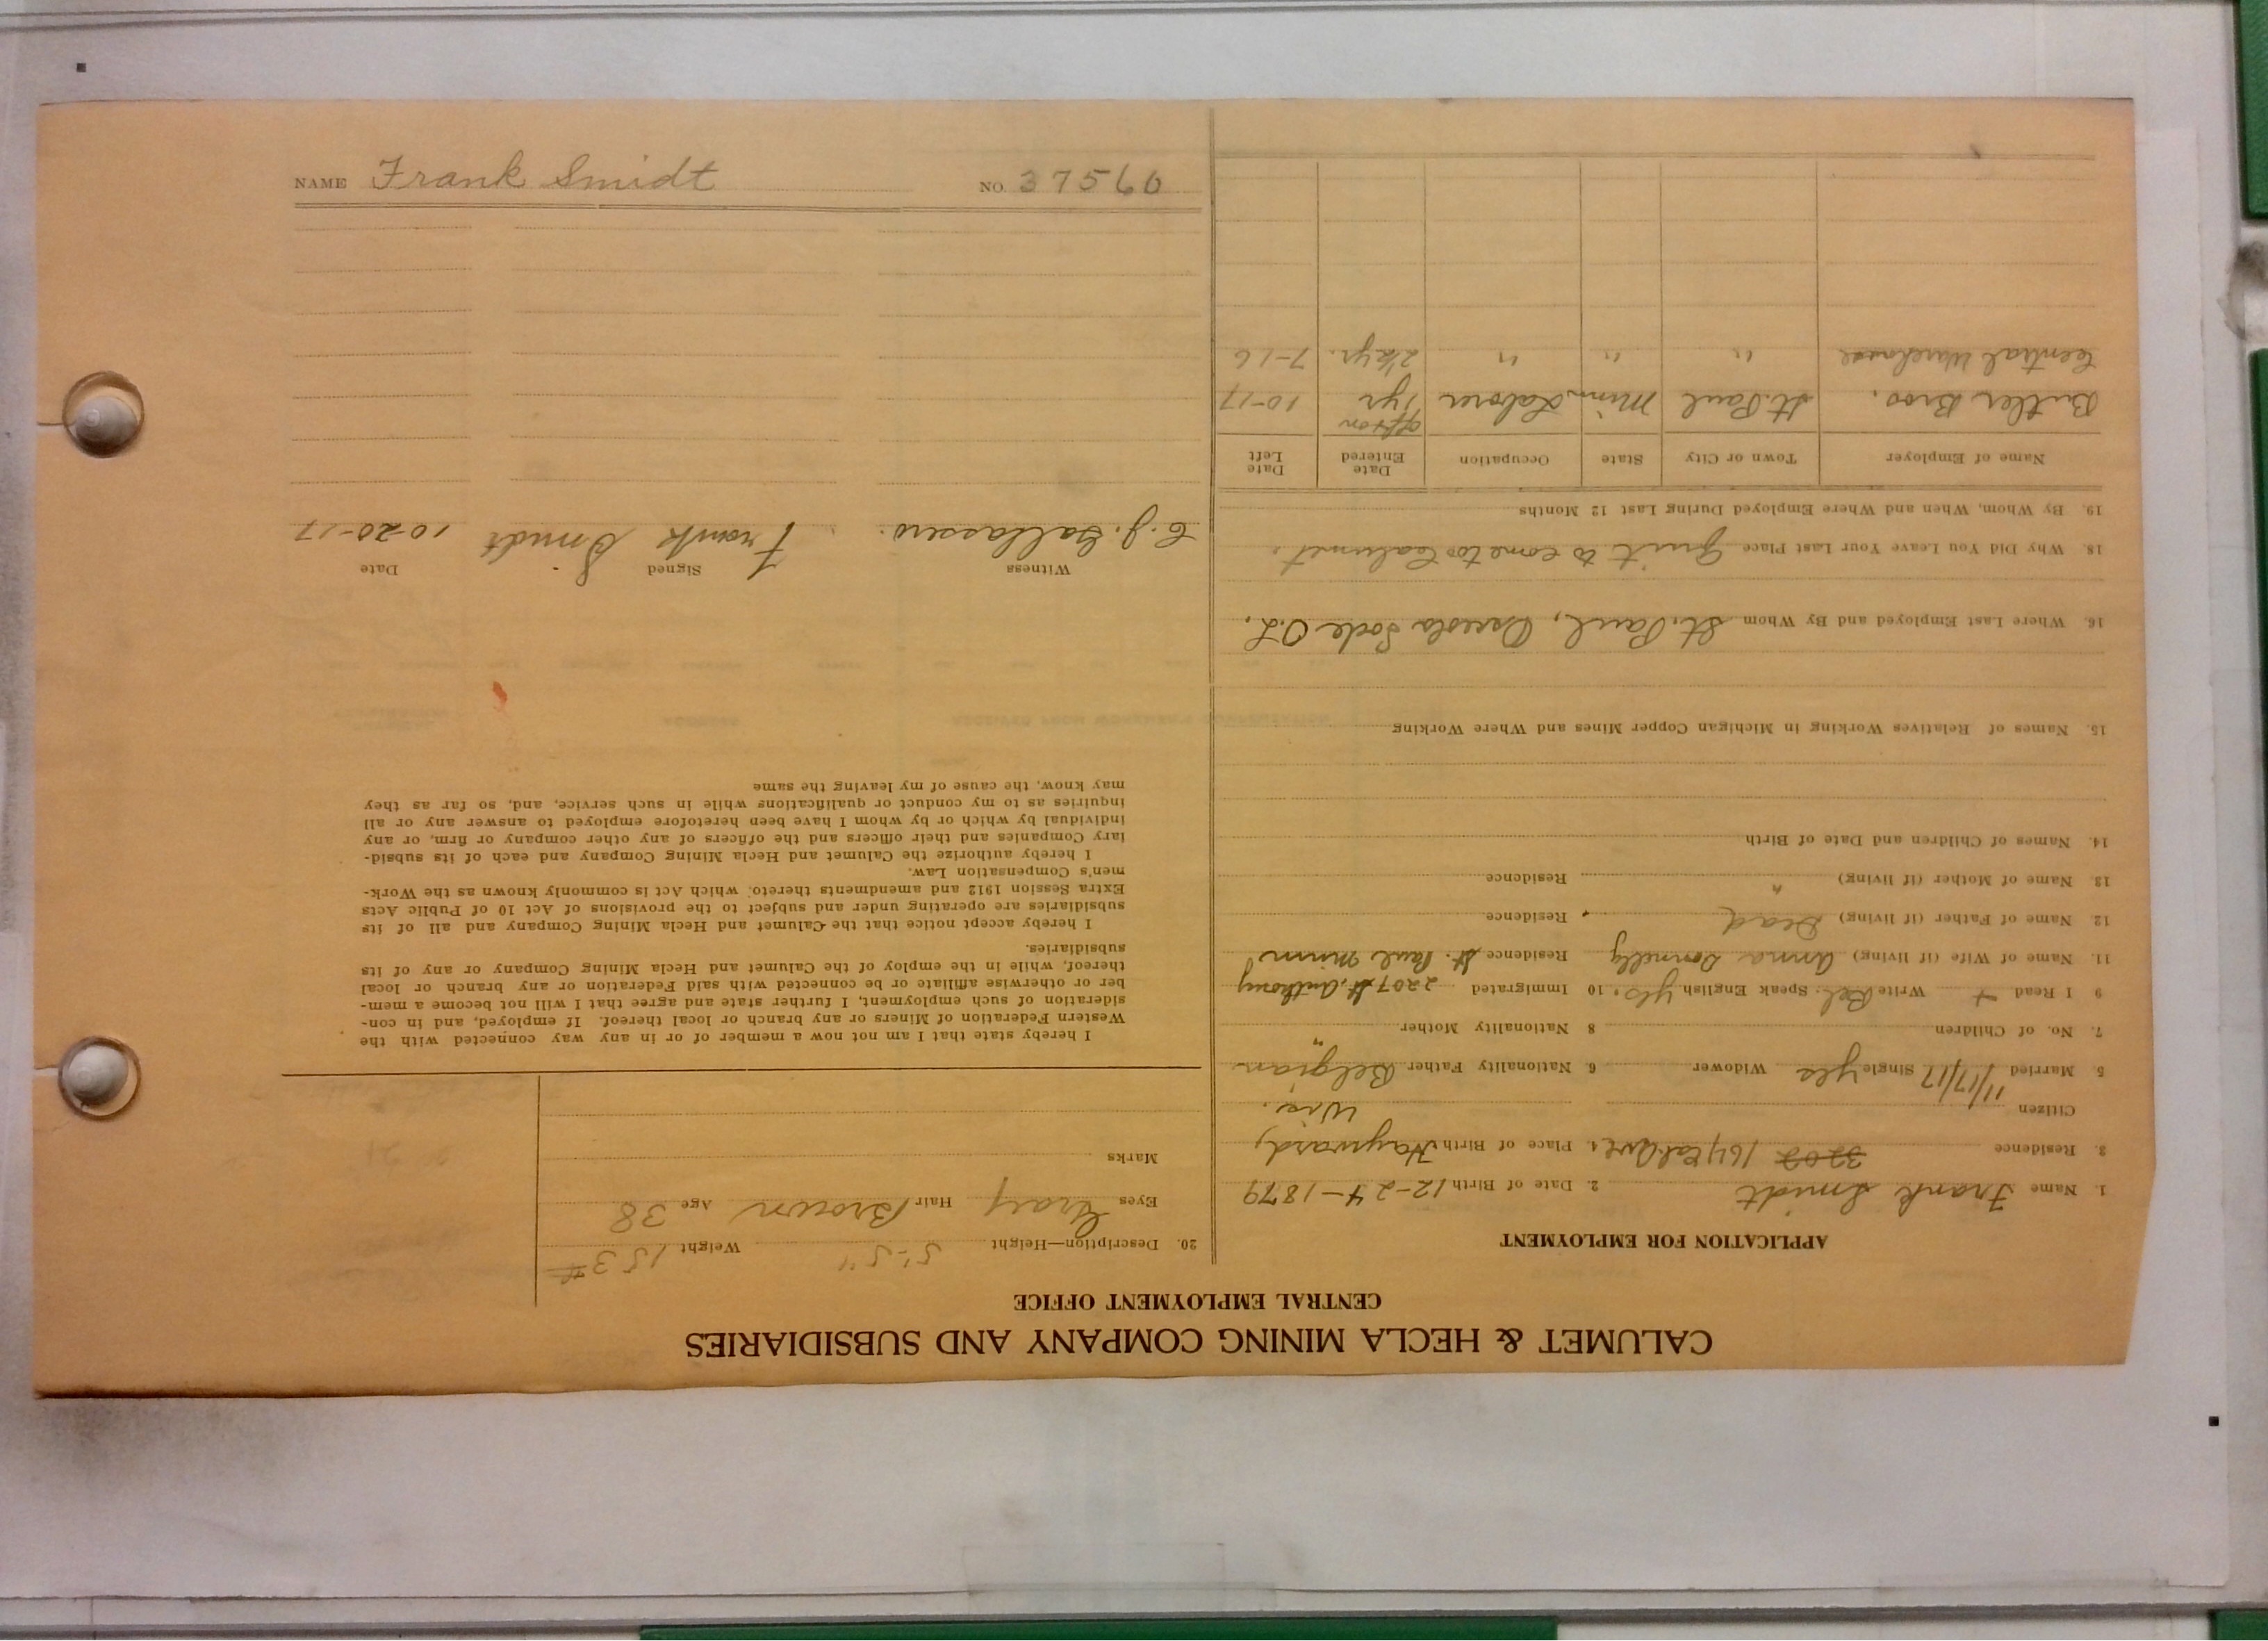 NAME Frank Smidt NO. 37560
CALUMET & HECLA MINING COMPANY AND SUBSIDIARIES
CENTRAL EMPLOYMENT OFFICE
APPLICATION FOR EMPLOYMENT
1. Name Frank Smidt 2. Date of Birth 12-24-1879
3. Residence 3202 164 Cal. Ave 4. Place of Birth Hayward,
Citizen Wis.
5 Married 11/17/17 Single yes Widower 6. Nationality Father Belgian
7. No. of Children 8 Nationality Mother "
9 I Read + Write Bel. Speak English yes. 10 Immigrated 2207 St. Anthony
11. Name of Wife (if living) Anna Donnelly Residence St. Paul Minn
12. Name of Father (if living) Dead Residence
13. Name of Mother (if living) " Residence
14. Names of Children and Date of Birth
15. Names of Relatives Working in Michigan Copper Mines and Where Working
16. Where Last Employed and By Whom St. Paul, Osceola Lode O.L.
18. Why Did You Leave Your Last Place Quit to come to Calumet.
19. By Whom, When and Where Employed During Last 12 Months
Name of Employer Town or City State Occupation Date Entered Date Left
Butler Bros. St. Paul Minn Laborer off & on 1 yr 10-17
Central Warehouse " " " 2½ yr. 7-16
20. Description—Height 5'-5" Weight 153#
Eyes Gray Hair Brown Age 38
Marks
I hereby state that I am not now a member of or in any way connected with the
Western Federation of Miners or any branch or local thereof. If employed, and in con-
sideration of such employment, I further state and agree that I will not become a mem-
ber or otherwise affiliate or be connected with said Federation or any branch or local
thereof, while in the employ of the Calumet and Hecla Mining Company or any of its
subsidiaries.
I hereby accept notice that the Calumet and Hecla Mining Company and all of its
subsidiaries are operating under and subject to the provisions of Act 10 of Public Acts
Extra Session 1912 and amendments thereto, which Act is commonly known as the Work-
men's Compensation Law.
I hereby authorize the Calumet and Hecla Mining Company and each of its subsid-
iary Companies and their officers and the officers of any other company or firm, or any
individual by which or by whom I have been heretofore employed to answer any or all
inquiries as to my conduct or qualifications while in such service, and, so far as they
may know, the cause of my leaving the same
Witness Signed Date
Frank Smidt 10-20-17